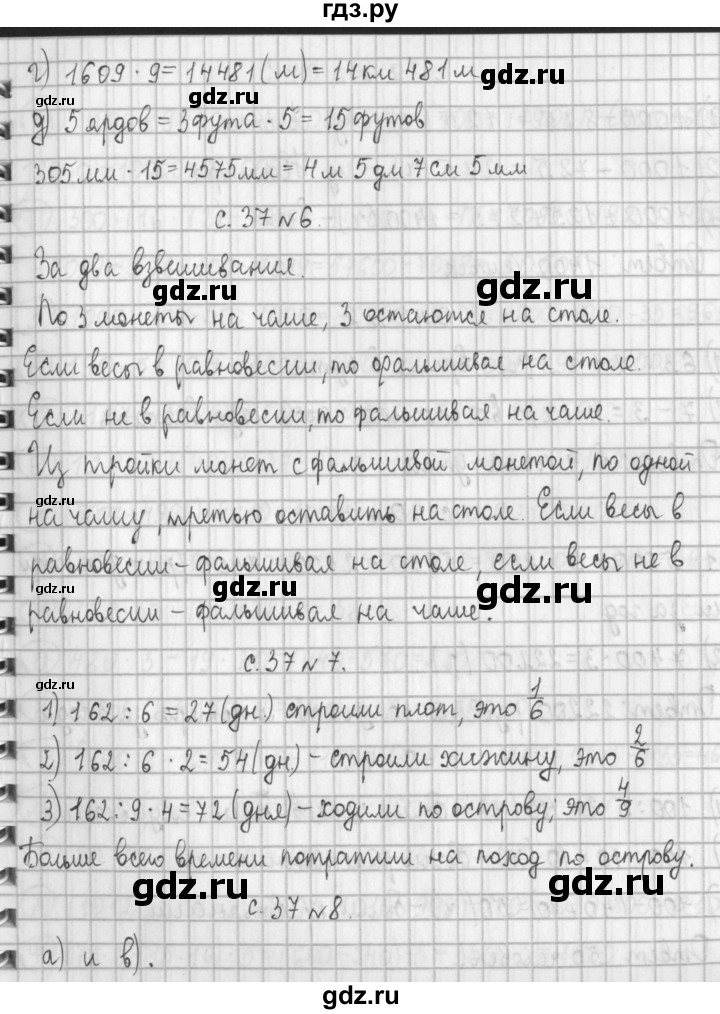 гдз.ру
г) 1609 · 9 = 14481 (м) = 14 км 481 м
gdz.ru
gdz.ru
gdz.ru
д) 5 ярдов = 3 фута · 5 = 15 футов
305 мм · 15 = 4575 мм = 4 м 5 дм 7 см 5 мм
с. 37 № 6.
За два взвешивания.
gdz.ru
gdz.ru
gdz.ru
По 3 монеты на чаше, 3 остаются на столе.
Если весы в равновесии, то фальшивая на столе.
Если не в равновесии, то фальшивая на чаше.
Из тройки монет с фальшивой монетой, по одной
gdz.ru
на чашу, третью оставить на столе. Если весы в
равновесии – фальшивая на столе, если весы не в
gdz.ru
gdz.ru
gdz.ru
равновесии – фальшивая на чаше.
с. 37 № 7.
gdz.ru
1) 162 : 6 = 27 (дн.) строили плот, это 1/6
2) 162 : 6 · 2 = 54 (дн) – строили хижину, это 2/6
3) 162 : 9 · 4 = 72 (дня) – ходили по острову, это 4/9
Больше всего времени потратили на поход по острову.
gdz.ru
gdz.ru
gdz.ru
с. 37 № 8.
а) и в).
gdz.ru